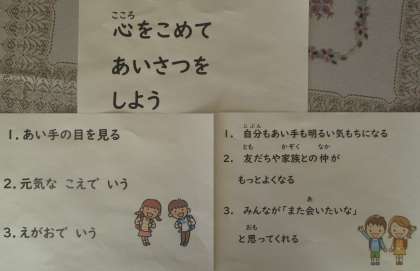 心をこめて
あいさつを
しよう
1.あい手の目を見る
2.元気な こえで いう
3.えがおで いう
1. 自分もあい手も明るい気もちになる
2. 友だちや家族との仲が
もっとよくなる
3. みんなが「また会いたいな」
と思ってくれる